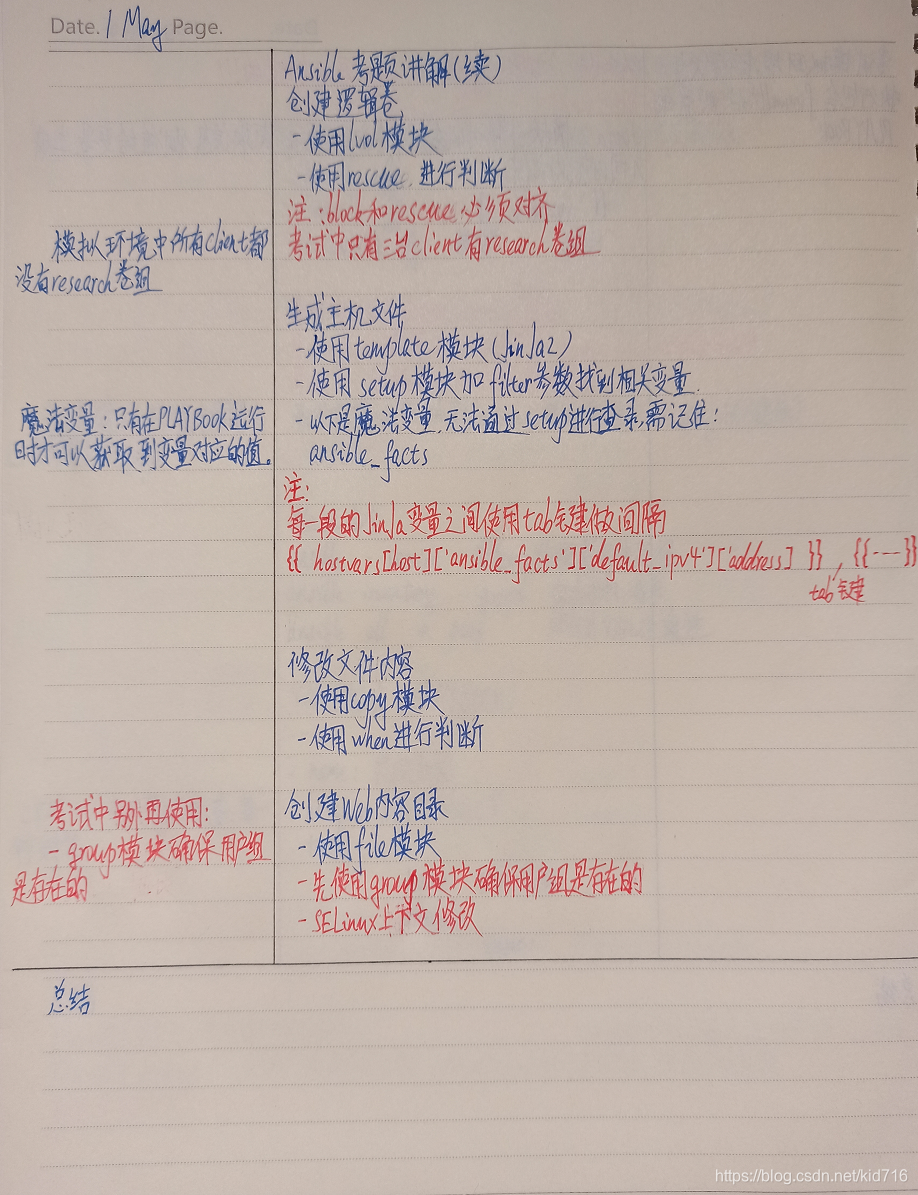 Date. 1 May Page.
Ansible 考题讲解(续)
创建逻辑卷
-使用lvol模块
-使用rescue 进行判断
注:block和rescue必须对齐
模拟环境中所有client都
考试中只有三台client有research卷组
没有research卷组
生成主机文件
-使用template模块(Jinja2)
-使用 setup模块加filter参数找到相关变量
魔法变量:只有在PLAYBook运行
-以下是魔法变量,无法通过setup进行查录,需记住:
时才可以获取到变量对应的值。
ansible_facts
注:
每一段的Jinja变量之间使用tab键做间隔
{{ hostvars[host]['ansible_facts']['default_ipv4']['address] }} , {{---}}
tab键
修改文件内容
-使用copy模块
-使用when进行判断
考试中别再使用:
创建Web内容目录
-group模块确保用户组
-使用file模块
是存在的
-先使用group模块确保用户组是存在的
-SELinux上下文修改
总结
https://blog.csdn.net/kid716